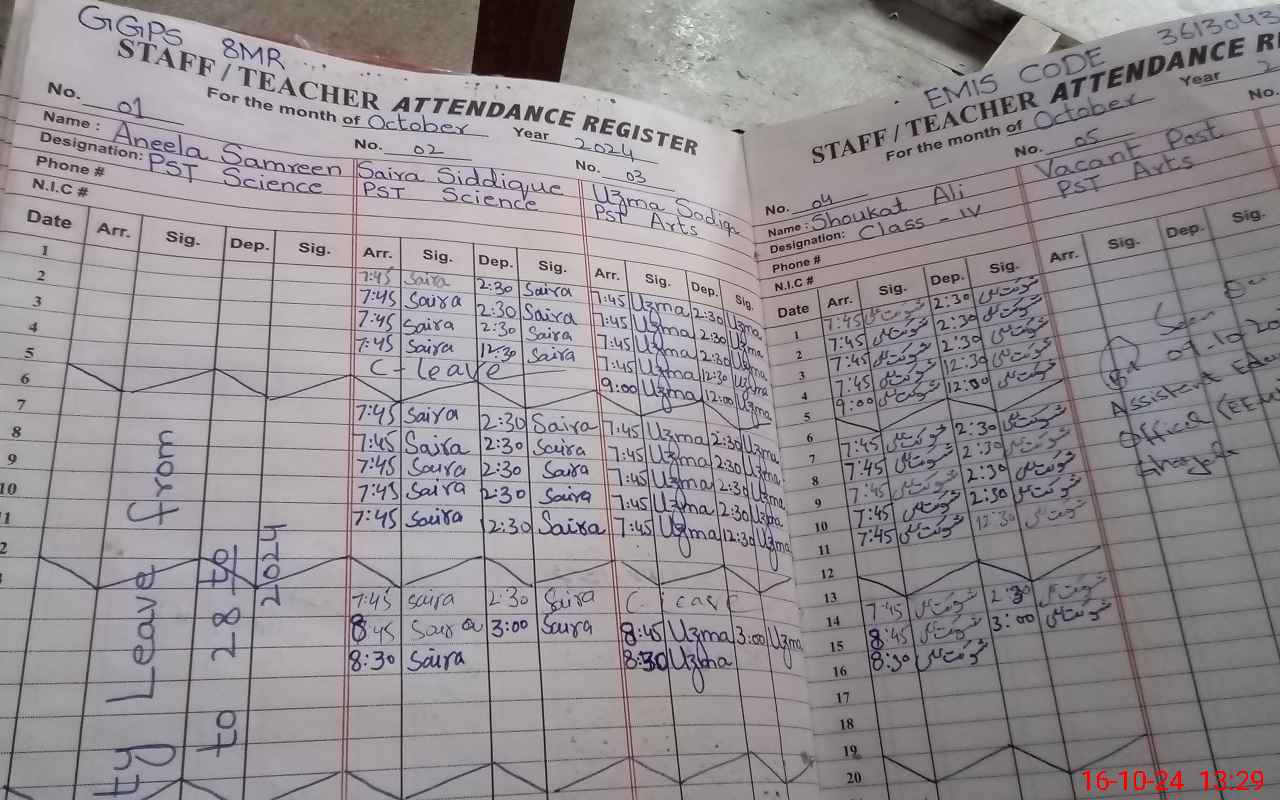 GGPS 8MR
STAFF / TEACHER ATTENDANCE REGISTER
For the month of October Year 2024
No. 01
No. 02
No. 03
Name : Aneela Samreen
Saira Siddique
Uzma Sadiqa
Designation: PST Science
PST Science
PST Arts
Phone #
N.I.C #
Date Arr. Sig. Dep. Sig. Arr. Sig. Dep. Sig. Arr. Sig. Dep. Sig.
1 7:45 Saira 2:30 Saira 7:45 Uzma 2:30 Uzma
2 7:45 Saira 2:30 Saira 7:45 Uzma 2:30 Uzma
3 7:45 Saira 2:30 Saira 7:45 Uzma 2:30 Uzma
4 7:45 Saira 12:30 Saira 7:45 Uzma 12:30 Uzma
5 C-leave 9:00 Uzma 12:00 Uzma
6
7 7:45 Saira 2:30 Saira 7:45 Uzma 2:30 Uzma
8 7:45 Saira 2:30 Saira 7:45 Uzma 2:30 Uzma
9 7:45 Saira 2:30 Saira 7:45 Uzma 2:30 Uzma
10 7:45 Saira 2:30 Saira 7:45 Uzma 2:30 Uzma
11 7:45 Saira 12:30 Saira 7:45 Uzma 12:30 Uzma
7:45 Saira 2:30 Saira C-leave
8:45 Saira 3:00 Saira 8:45 Uzma 3:00 Uzma
8:30 Saira 8:30 Uzma
ty Leave from
to 28 to
2024
EMIS CODE 3613043
STAFF / TEACHER ATTENDANCE RE
For the month of October Year 2
No. 04
No. 05
No.
Name : Shoukat Ali
Vacant Post
Designation: Class - IV
PST Arts
Phone #
N.I.C #
Date Arr. Sig. Dep. Sig. Arr. Sig. Dep. Sig.
1 7:45 شوکت علی 2:30 شوکت علی
2 7:45 شوکت علی 2:30 شوکت علی
3 7:45 شوکت علی 2:30 شوکت علی
4 7:45 شوکت علی 12:30 شوکت علی
5 9:00 شوکت علی 12:00 شوکت علی
6
7 7:45 شوکت علی 2:30 شوکت علی
8 7:45 شوکت علی 2:30 شوکت علی
9 7:45 شوکت علی 2:30 شوکت علی
10 7:45 شوکت علی 2:30 شوکت علی
11 7:45 شوکت علی 12:30 شوکت علی
12
13
14 7:45 شوکت علی 2:30 شوکت علی
15 8:45 شوکت علی 3:00 شوکت علی
16 8:30 شوکت علی
17
18
19
20
Seen
Assistant
Office
16-10-24 13:29